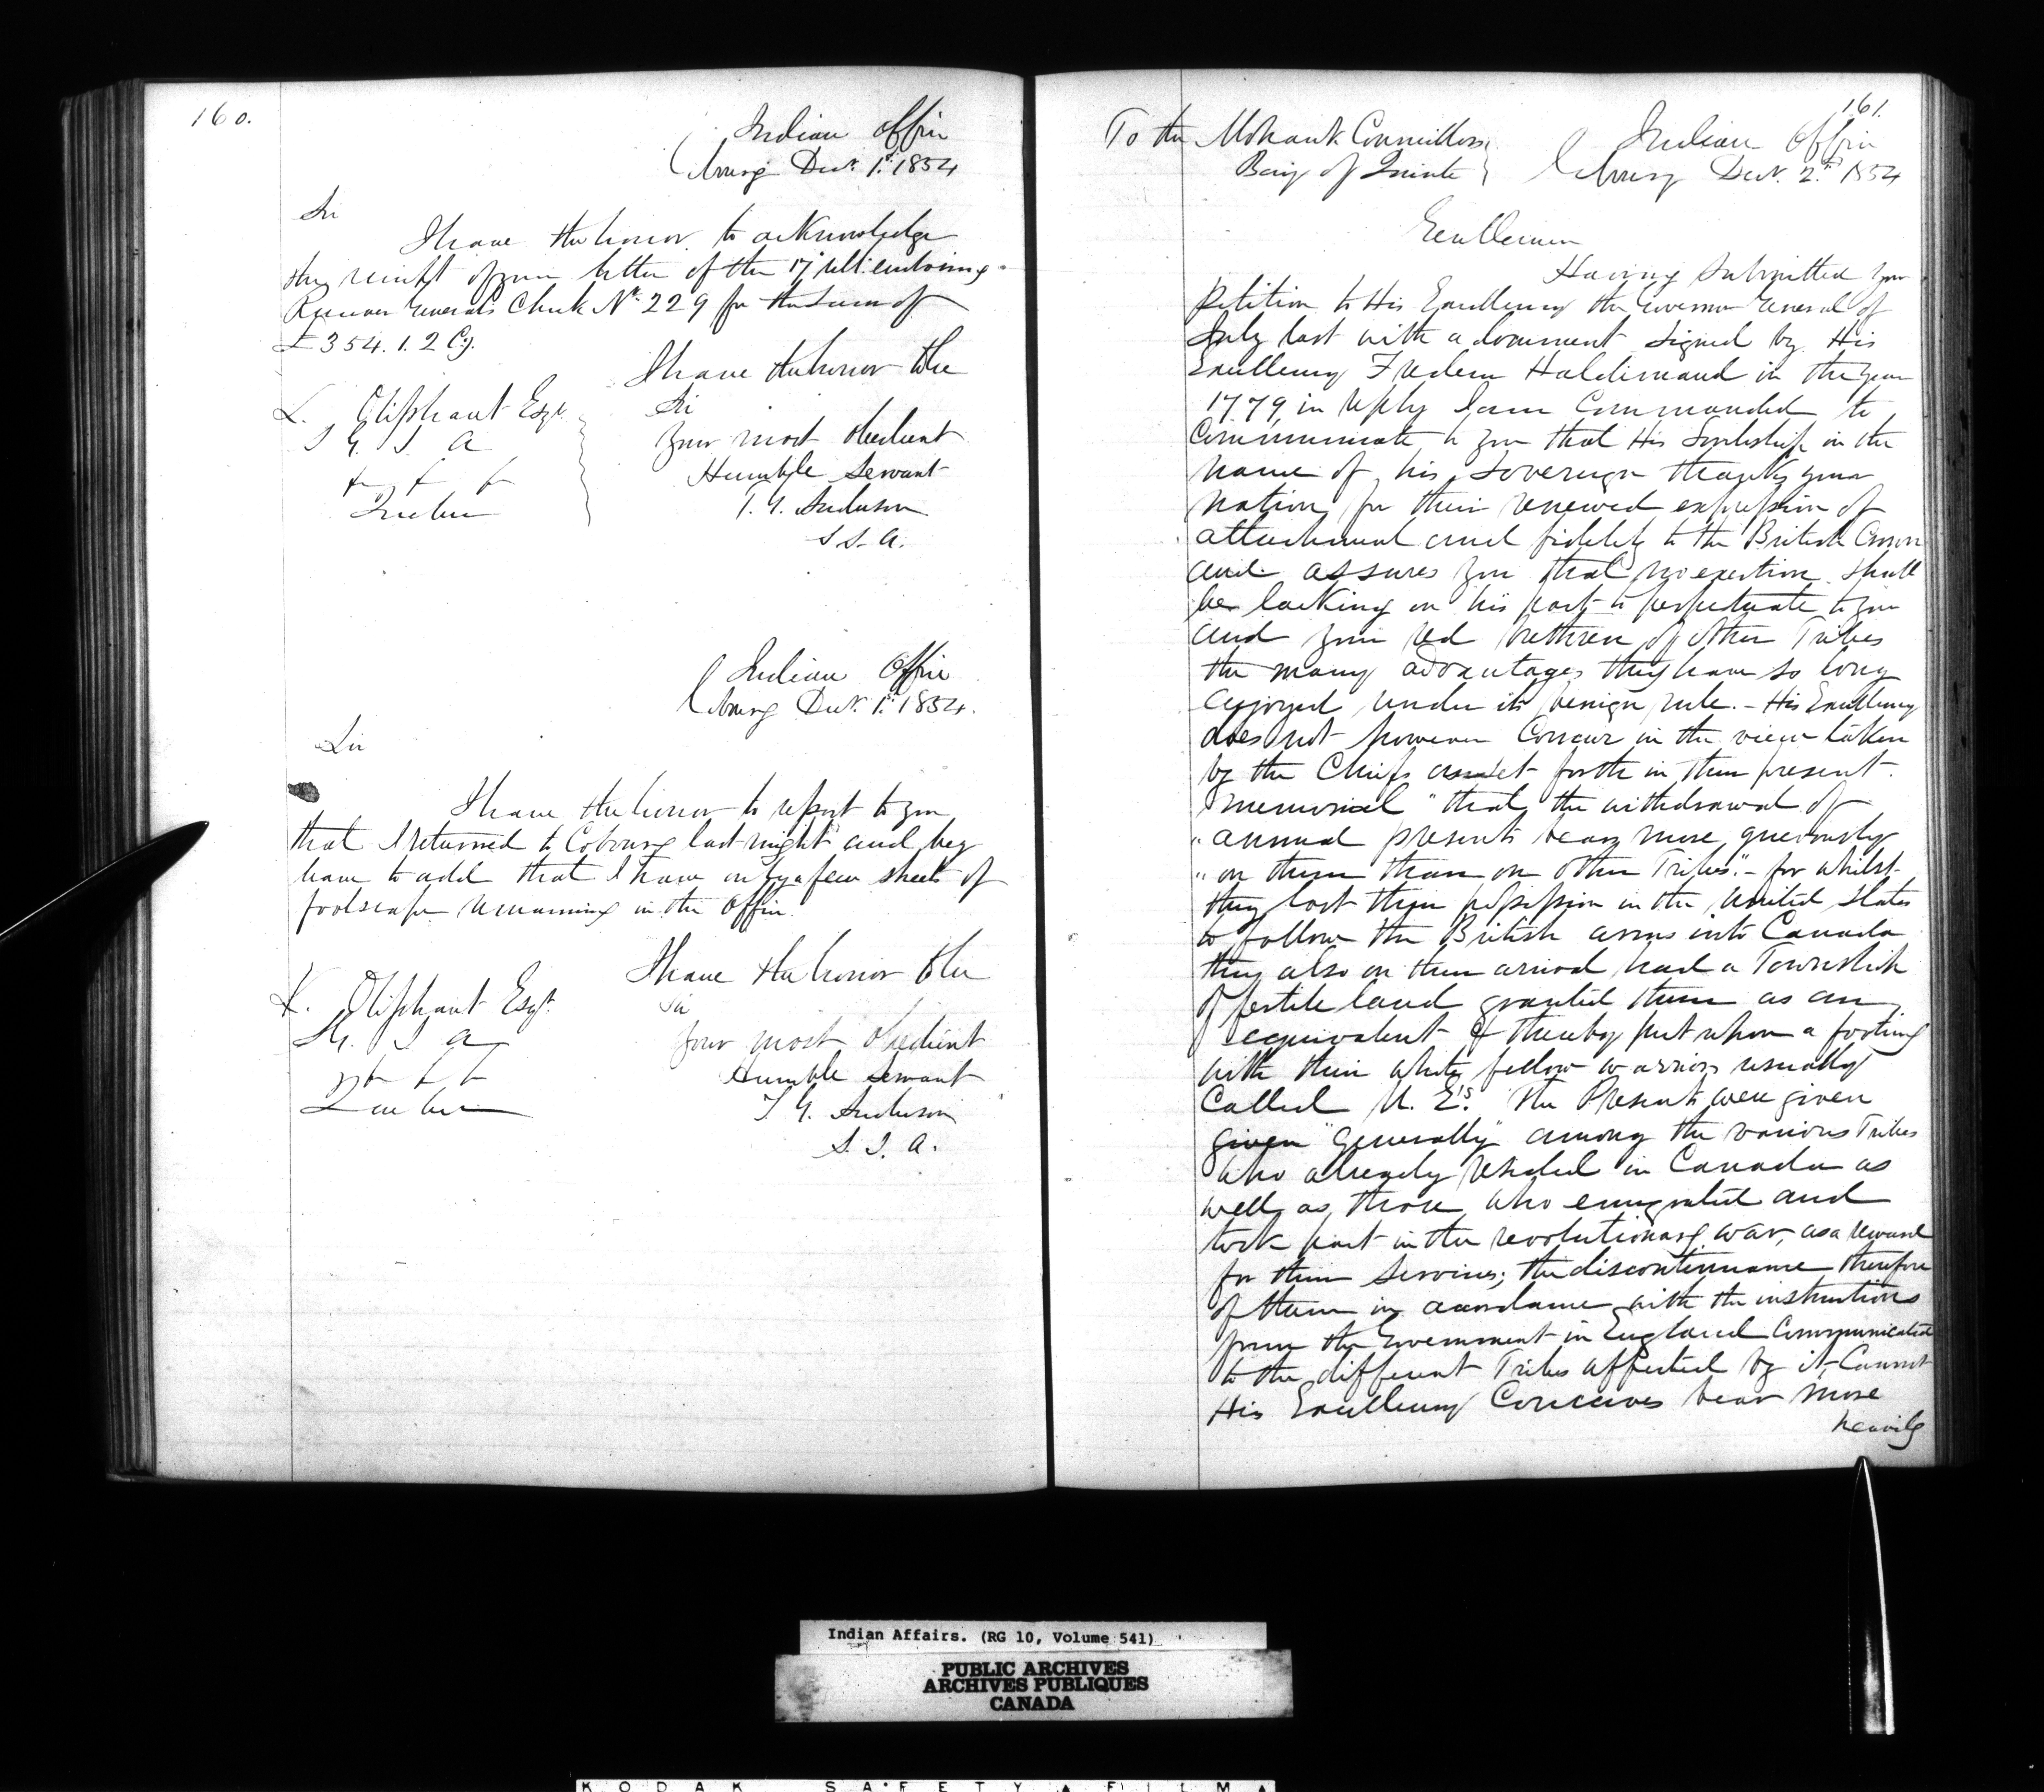 160.
Indian Office
Cobourg Decr. 1st 1854
Sir
I have the honor to acknowledge
the receipt of your letter of the 17th ulto. enclosing
Receiver Generals Check No. 229 for the sum of
£354.1.2 Cy.
I have the honor to be
Sir
Your most obedient
Humble Servant
T. G. Anderson
S. I. A.
L. Oliphant Esqr.
S G I A
Quebec
Indian Office
Cobourg Decr. 1st 1854.
Sir
I have the honor to report to you
that I returned to Cobourg last night and beg
leave to add that I have only a few sheets of
foolscape remaining in the Office.
I have the honor to be
Sir
Your most obedient
Humble Servant
T G. Anderson
S. I. A.
L. Oliphant Esqr.
S G. I A
Quebec
161.
To the Mohawk Councillors
Bay of Quinte
Indian Office
Cobourg Decr. 2nd 1854
Gentlemen
Having submitted your
petition to His Excellency the Governor General of
July last with a document signed by His
Excellency Frederic Haldimand in the year
1779, in reply I am Commanded to
Communicate to you that His Lordship in the
name of his Sovereign thanks your
Nation for their renewed expression of
attachment and fidelity to the British Crown
and assures you that no exertion shall
be lacking on his part to perpetuate to you
and your red brethren of other Tribes
the many advantages they have so long
enjoyed under its benign rule. - His Excellency
does not however Concur in the view taken
by the Chiefs as set forth in their present
memorial "that the withdrawal of
"annual presents bears more grievously
"on them than on other Tribes" - for whilst
they lost their possession in the United States
to follow the British arms into Canada
they also on their arrival had a Township
of fertile land granted them as an
equivalent & thereby put upon a footing
with their white fellow warriors usually
Called U. E's. The Presents were given
given "generally" among the various Tribes
who already resided in Canada as
well as those who emigrated and
took part in the revolutionary war, as a reward
for their services; the discontinuance therefore
of them in accordance with the instructions
from the Government in England Communicated
to the different Tribes affected by it, Cannot
His Excellency Conceives bear more
heavily
Indian Affairs. (RG 10, Volume 541)
PUBLIC ARCHIVES
ARCHIVES PUBLIQUES
CANADA
KODAK SAFETY FILM